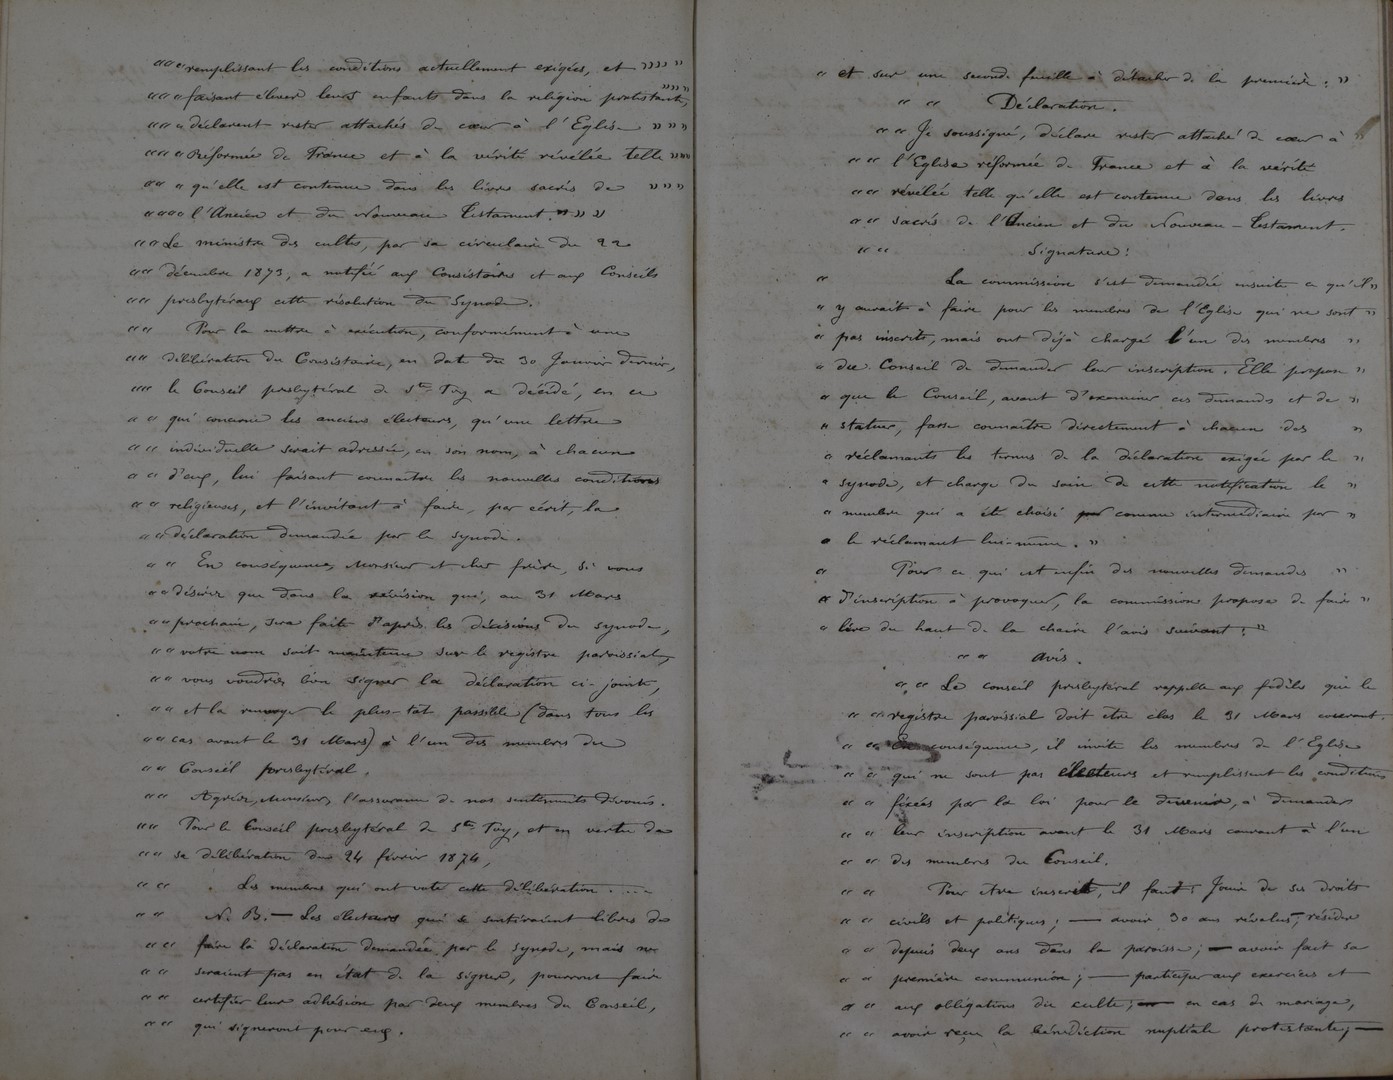 "" "remplissant les conditions actuellement exigées, et """"
"" "faisant élever leurs enfants dans la religion protestante, """"
"" "déclarent rester attachés de cœur à l'Eglise """
"" "Réformée de France et à la vérité révélée telle """
"" "qu'elle est contenue dans les livres sacrés de """
"" ""l'Ancien et du Nouveau Testament." """
""Le ministre des cultes, par sa circulaire du 22
"" décembre 1873, a notifié aux Consistoires et aux Conseils
"" presbytéraux cette résolution du Synode.
"" Pour la mettre à exécution, conformément à une
"" délibération du Consistoire, en date du 30 Janvier dernier,
"" le Conseil presbytéral de Ste Foy a décidé, en ce
"" qui concerne les anciens électeurs, qu'une lettre
"" individuelle serait adressée, en son nom, à chacun
"" d'eux, lui faisant connaître les nouvelles conditions
"" religieuses, et l'invitant à faire, par écrit, la
"" déclaration demandée par le synode.
"" En conséquence, Monsieur et cher frère, si vous
"" désirez que dans la révision qui, au 31 Mars
"" prochain, sera faite d'après les décisions du synode,
"" votre nom soit maintenu sur le registre paroissial,
"" vous voudrez bien signer la déclaration ci-jointe,
"" et la renvoyer le plus-tôt possible (dans tous les
"" cas avant le 31 Mars) à l'un des membres du
"" Conseil presbytéral.
"" Agréez, Monsieur, l'assurance de nos sentiments dévoués.
"" Pour le Conseil presbytéral de Ste Foy, et en vertu de
"" sa délibération du 24 février 1874,
"" . Les membres qui ont voté cette délibération . ...
"" N. B. — Les électeurs qui se sentiraient libres de
"" faire la déclaration demandée par le synode, mais ne
"" seraient pas en état de la signer, pourront faire
"" certifier leur adhésion par deux membres du Conseil,
"" qui signeront pour eux.
" et sur une seconde feuille à détacher de la première : "
"" Déclaration.
"" Je soussigné, déclare rester attaché de cœur à "
"" l'Eglise réformée de France et à la vérité
"" révélée telle qu'elle est contenue dans les livres
"" sacrés de l'Ancien et du Nouveau-Testament.
"" Signature :
" La commission s'est demandée ensuite ce qu'il "
" y aurait à faire pour les membres de l'Eglise qui ne sont "
" pas inscrits, mais ont déjà chargé l'un des membres "
" du Conseil de demander leur inscription. Elle propose "
" que le Conseil, avant d'examiner ces demandes et de "
" statuer, fasse connaître directement à chacun des "
" réclamants les termes de la déclaration exigée par le "
" synode, et charge du soin de cette notification le "
" membre qui a été choisi comme intermédiaire par "
" le réclamant lui-même. "
" Pour ce qui est enfin des nouvelles demandes "
" d'inscription à provoquer, la commission propose de faire "
" lire du haut de la chaire l'avis suivant : "
"" Avis.
"" Le conseil presbytéral rappelle aux fidèles que le
"" registre paroissial doit être clos le 31 Mars courant.
"" En conséquence, il invite les membres de l'Eglise
"" qui ne sont pas électeurs et remplissent les conditions
"" fixées par la loi pour le devenir, à demander
"" leur inscription avant le 31 Mars courant à l'un
"" des membres du Conseil.
"" Pour être inscrit, il faut : Jouir de ses droits
"" civils et politiques ; — avoir 30 ans révolus ; résider
"" depuis deux ans dans la paroisse ; — avoir fait sa
"" première communion ; — participer aux exercices et
"" aux obligations du culte ; — en cas de mariage,
"" avoir reçu la bénédiction nuptiale protestante ; —